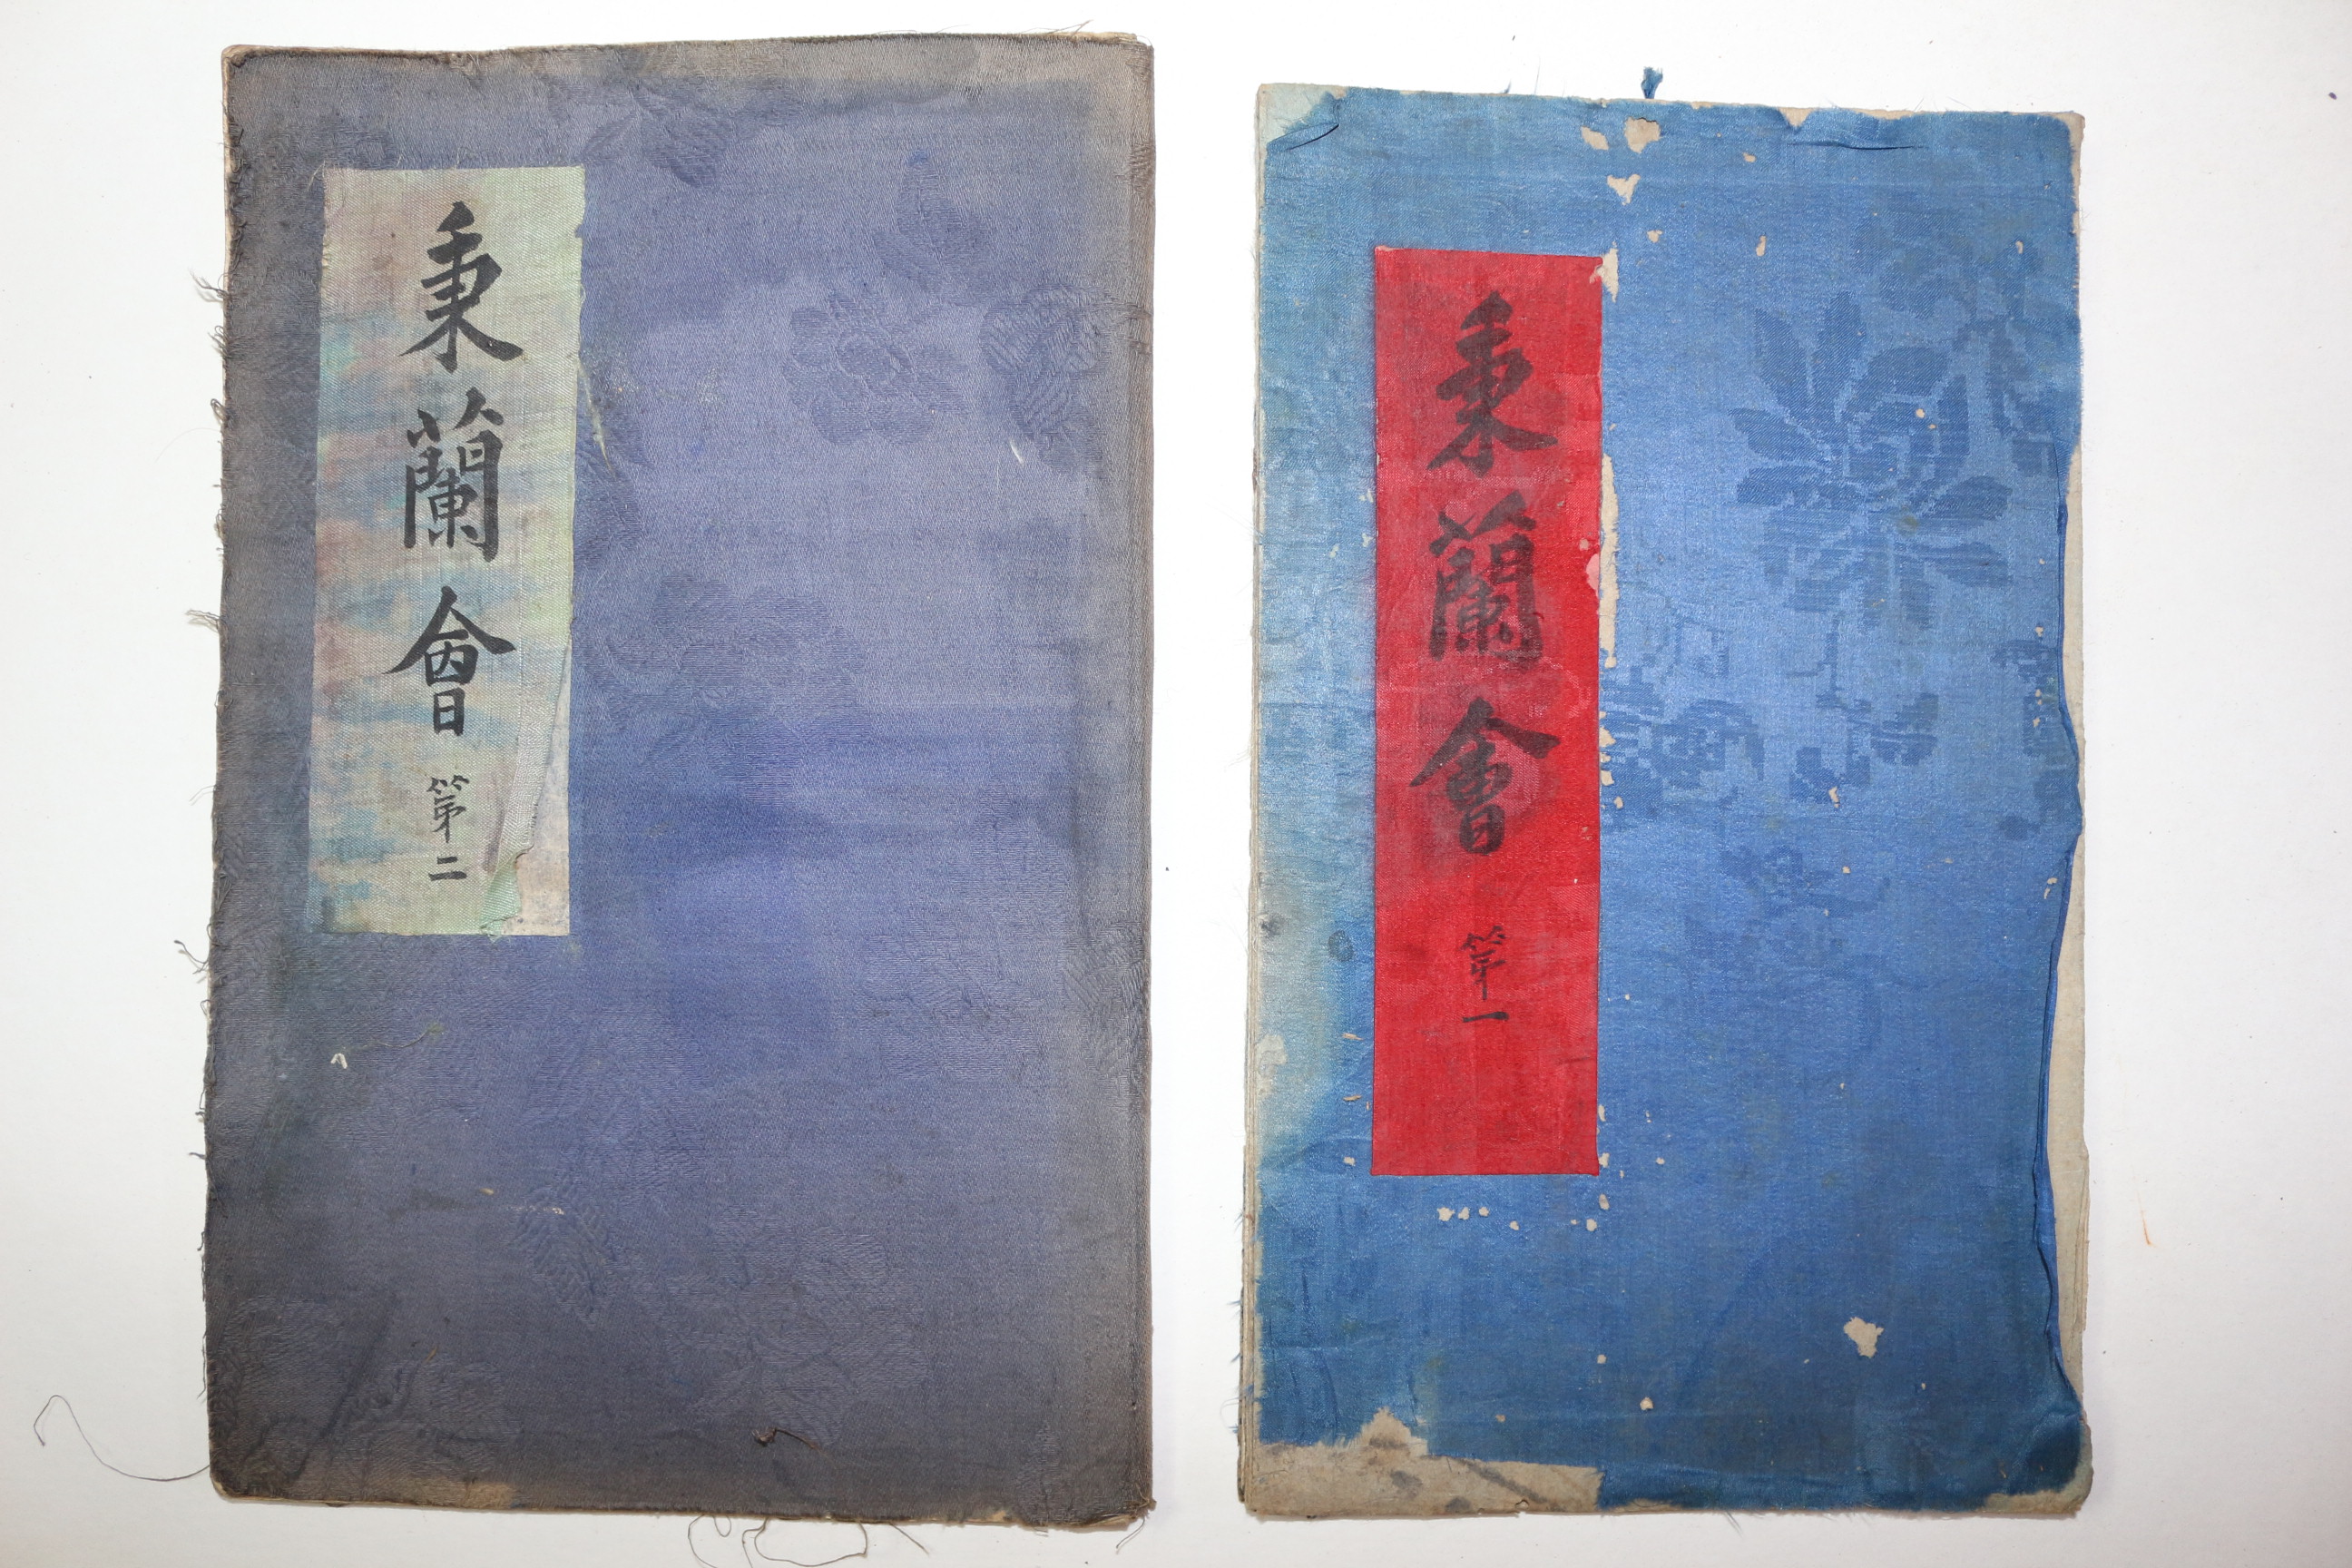 秉蘭會 第二
秉蘭會 第一